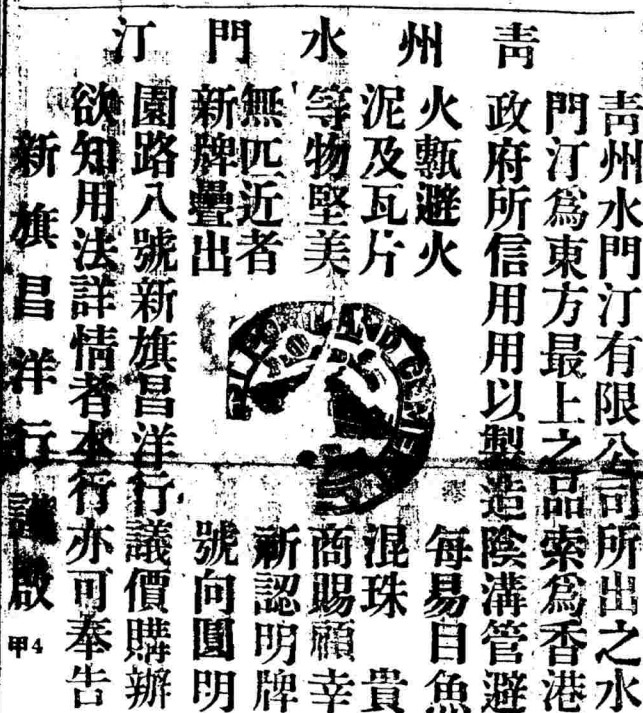 青州水門汀
青州水門汀有限公司所出之水
門汀爲東方最上之品索爲香港
政府所信用用以製造陰溝管避
火甎避火
泥及瓦片
等物堅美
無匹近者
新牌疊出
每易目魚
混珠 貴
商賜顧幸
祈認明牌
號向圓明
園路八號新旗昌洋行議價購辦
欲知用法詳情者本行亦可奉告
新旗昌洋行謹啟
甲4